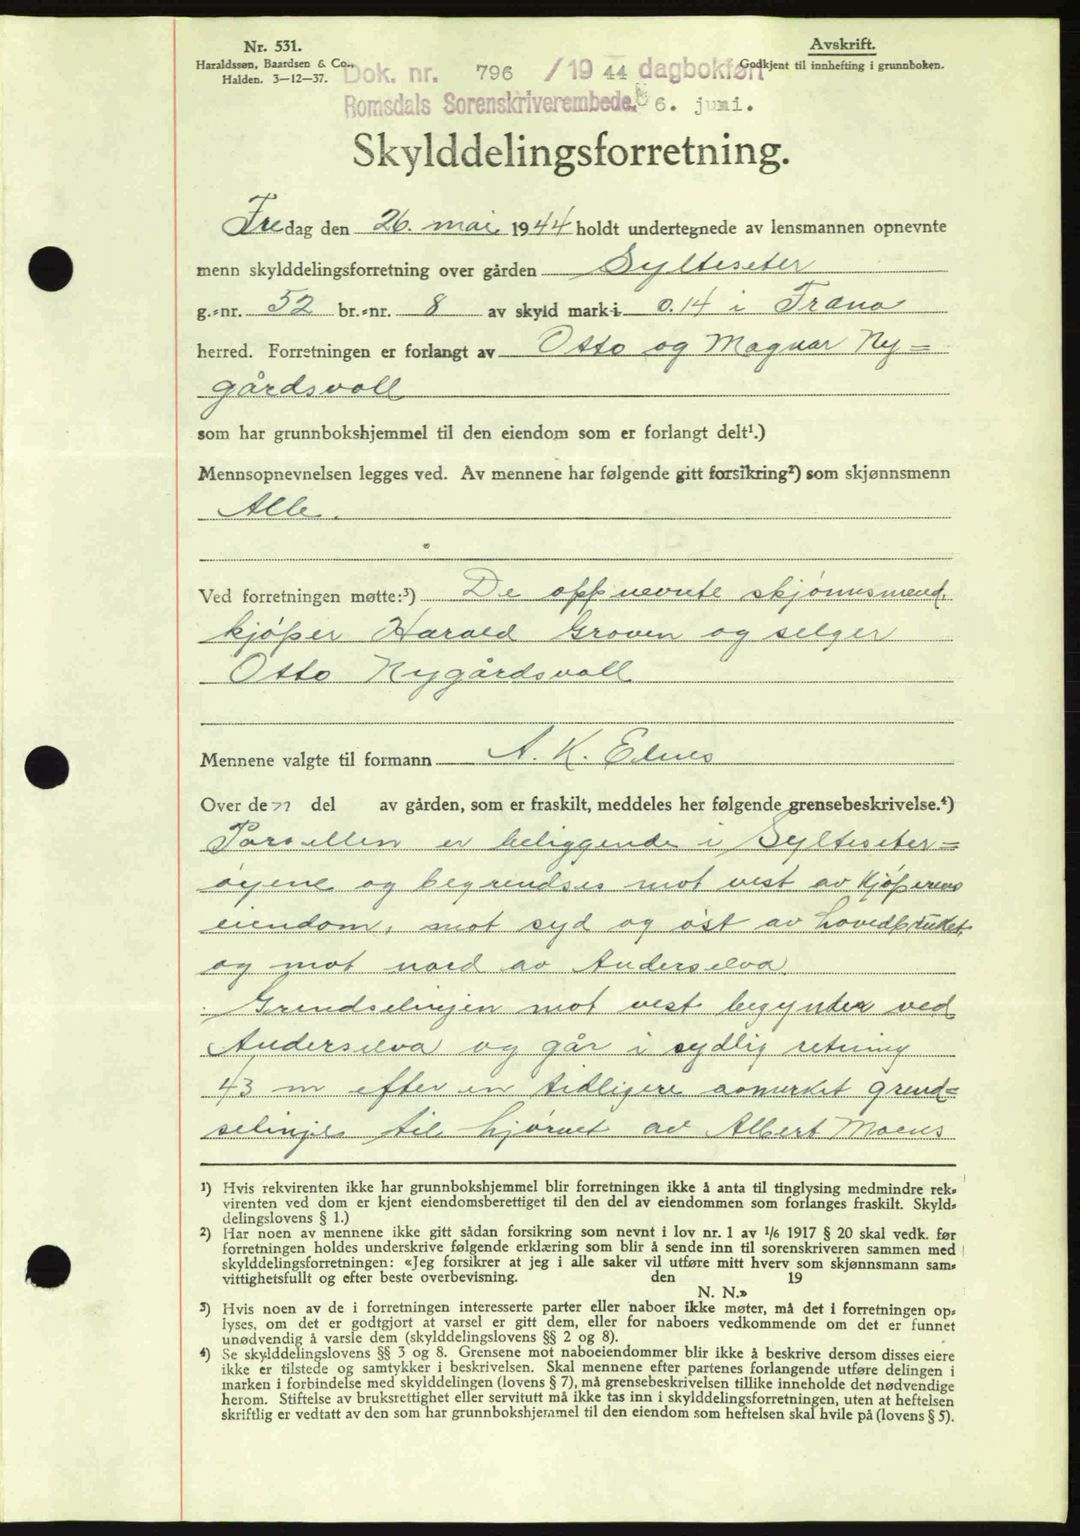 Nr. 531.
Haraldssøn, Baardsen & Co.,
Halden. 3-12-37.
Avskrift.
Godkjent til innhefting i grunnboken.
Dok. nr. 796 /19 44 dagbokført
Romsdals Sorenskriverembede. 6. juni.
Skylddelingsforretning.
Fredag den 26. mai 1944 holdt undertegnede av lensmannen opnevnte
menn skylddelingsforretning over gården Sylteseter
g.-nr. 52 br.-nr. 8 av skyld mark i 0.14 i Fræna
herred. Forretningen er forlangt av Otto og Magnar Ny=
gårdsvoll
som har grunnbokshjemmel til den eiendom som er forlangt delt¹.)
Mennsopnevnelsen legges ved. Av mennene har følgende gitt forsikring²) som skjønnsmenn
Alle.
Ved forretningen møtte:³) De oppnevnte skjönnsmend.
kjöper Harald Groven og selger
Otto Nygårdsvoll
Mennene valgte til formann A. K. Elnes
Over de del av gården, som er fraskilt, meddeles her følgende grensebeskrivelse.⁴)
Parsellen er beliggende i Sylteseter=
öyene og begrendses mot vest av kjöperens
eiendom, mot syd og öst av hovedbruket,
og mot nord av Anderselva.
Grendselinjen mot vest begynder ved
Anderselva og går i sydlig retning
43 m efter en tidligere avmerket grend=
selinje til hjörnet av Albert Moens
¹) Hvis rekvirenten ikke har grunnbokshjemmel blir forretningen ikke å anta til tinglysing medmindre rek=
virenten ved dom er kjent eiendomsberettiget til den del av eiendommen som forlanges fraskilt. Skyld=
delingslovens § 1.)
²) Har noen av mennene ikke gitt sådan forsikring som nevnt i lov nr. 1 av 1/6 1917 § 20 skal vedk. før
forretningen holdes underskrive følgende erklæring som blir å sende inn til sorenskriveren sammen med
skylddelingsforretningen: «Jeg forsikrer at jeg i alle saker vil utføre mitt hverv som skjønnsmann sam=
vittighetsfullt og efter beste overbevisning. den 19
N. N.»
³) Hvis noen av de i forretningen interesserte parter eller naboer ikke møter, må det i forretningen op=
lyses, om det er godtgjort at varsel er gitt dem, eller for naboers vedkommende om det er funnet
unødvendig å varsle dem (skylddelingslovens §§ 2 og 8).
⁴) Se skylddelingslovens §§ 3 og 8. Grensene mot naboeiendommer blir ikke å beskrive dersom disses eiere
ikke er tilstede og samtykker i beskrivelsen. Skal mennene efter partenes forlangende utføre delingen i
marken i forbindelse med skylddelingen (lovens § 7), må grensebeskrivelsen tillike inneholde det nødvendige
herom. Stiftelse av bruksrettighet eller servitutt må ikke tas inn i skylddelingsforretningen, uten at heftelsen
skriftlig er vedtatt av den som har grunnbokshjemmel til den eiendom som heftelsen skal hvile på (lovens § 5).